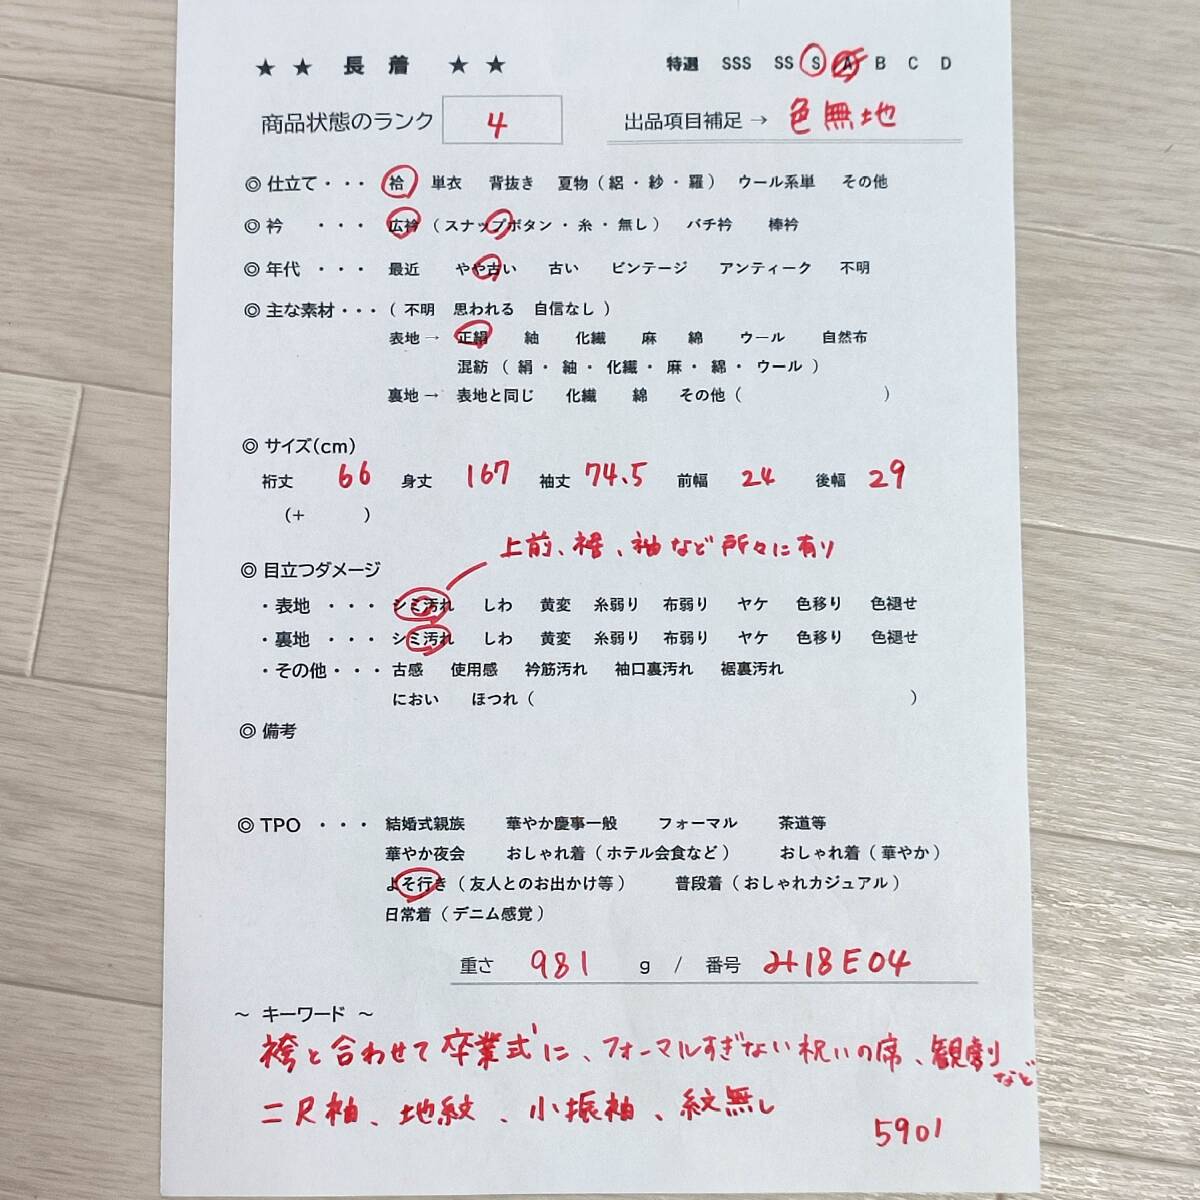 ★ ★ 長 着 ★ ★ 特選 SSS SS S A B C D
商品状態のランク 4 出品項目補足 → 色無地
◎ 仕立て・・・ 袷 単衣 背抜き 夏物（絽・紗・羅） ウール系単 その他
◎ 衿 ・・・ 広衿（スナップボタン・糸・無し） バチ衿 棒衿
◎ 年代 ・・・ 最近 やや古い 古い ビンテージ アンティーク 不明
◎ 主な素材・・・（不明 思われる 自信なし）
表地 → 正絹 紬 化繊 麻 綿 ウール 自然布
混紡（絹・紬・化繊・麻・綿・ウール）
裏地 → 表地と同じ 化繊 綿 その他（ ）
◎ サイズ(cm)
裄丈 66 身丈 167 袖丈 74.5 前幅 24 後幅 29
（+ ）
上前、裾、袖など所々に有り
◎ 目立つダメージ
・表地 ・・・ シミ汚れ しわ 黄変 糸弱り 布弱り ヤケ 色移り 色褪せ
・裏地 ・・・ シミ汚れ しわ 黄変 糸弱り 布弱り ヤケ 色移り 色褪せ
・その他・・・ 古感 使用感 衿筋汚れ 袖口裏汚れ 裾裏汚れ
におい ほつれ（ ）
◎ 備考
◎ TPO ・・・ 結婚式親族 華やか慶事一般 フォーマル 茶道等
華やか夜会 おしゃれ着（ホテル会食など） おしゃれ着（華やか）
よそ行き（友人とのお出かけ等） 普段着（おしゃれカジュアル）
日常着（デニム感覚）
重さ 981 g / 番号 み18E04
～ キーワード ～
袴と合わせて卒業式に、フォーマルすぎない祝いの席、観劇など
二尺袖、地紋、小振袖、紋無し
5901